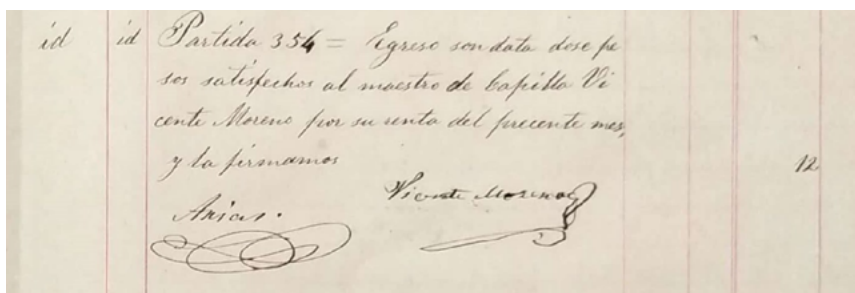 id id Partida 354 = Egreso son data dose pe
sos satisfechos al maestro de Capilla Vi
cente Moreno por su renta del precente mes,
y la firmamos
12
Vicente Moreno
Arias.